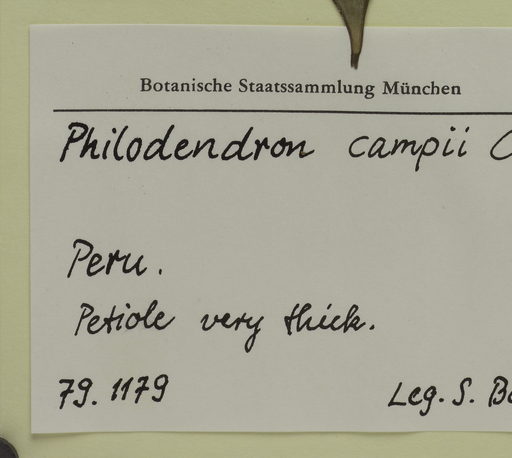 Botanische Staatssammlung München
Philodendron campii C
Peru.
Petiole very thick.
79. 1179 Leg. S. Bo